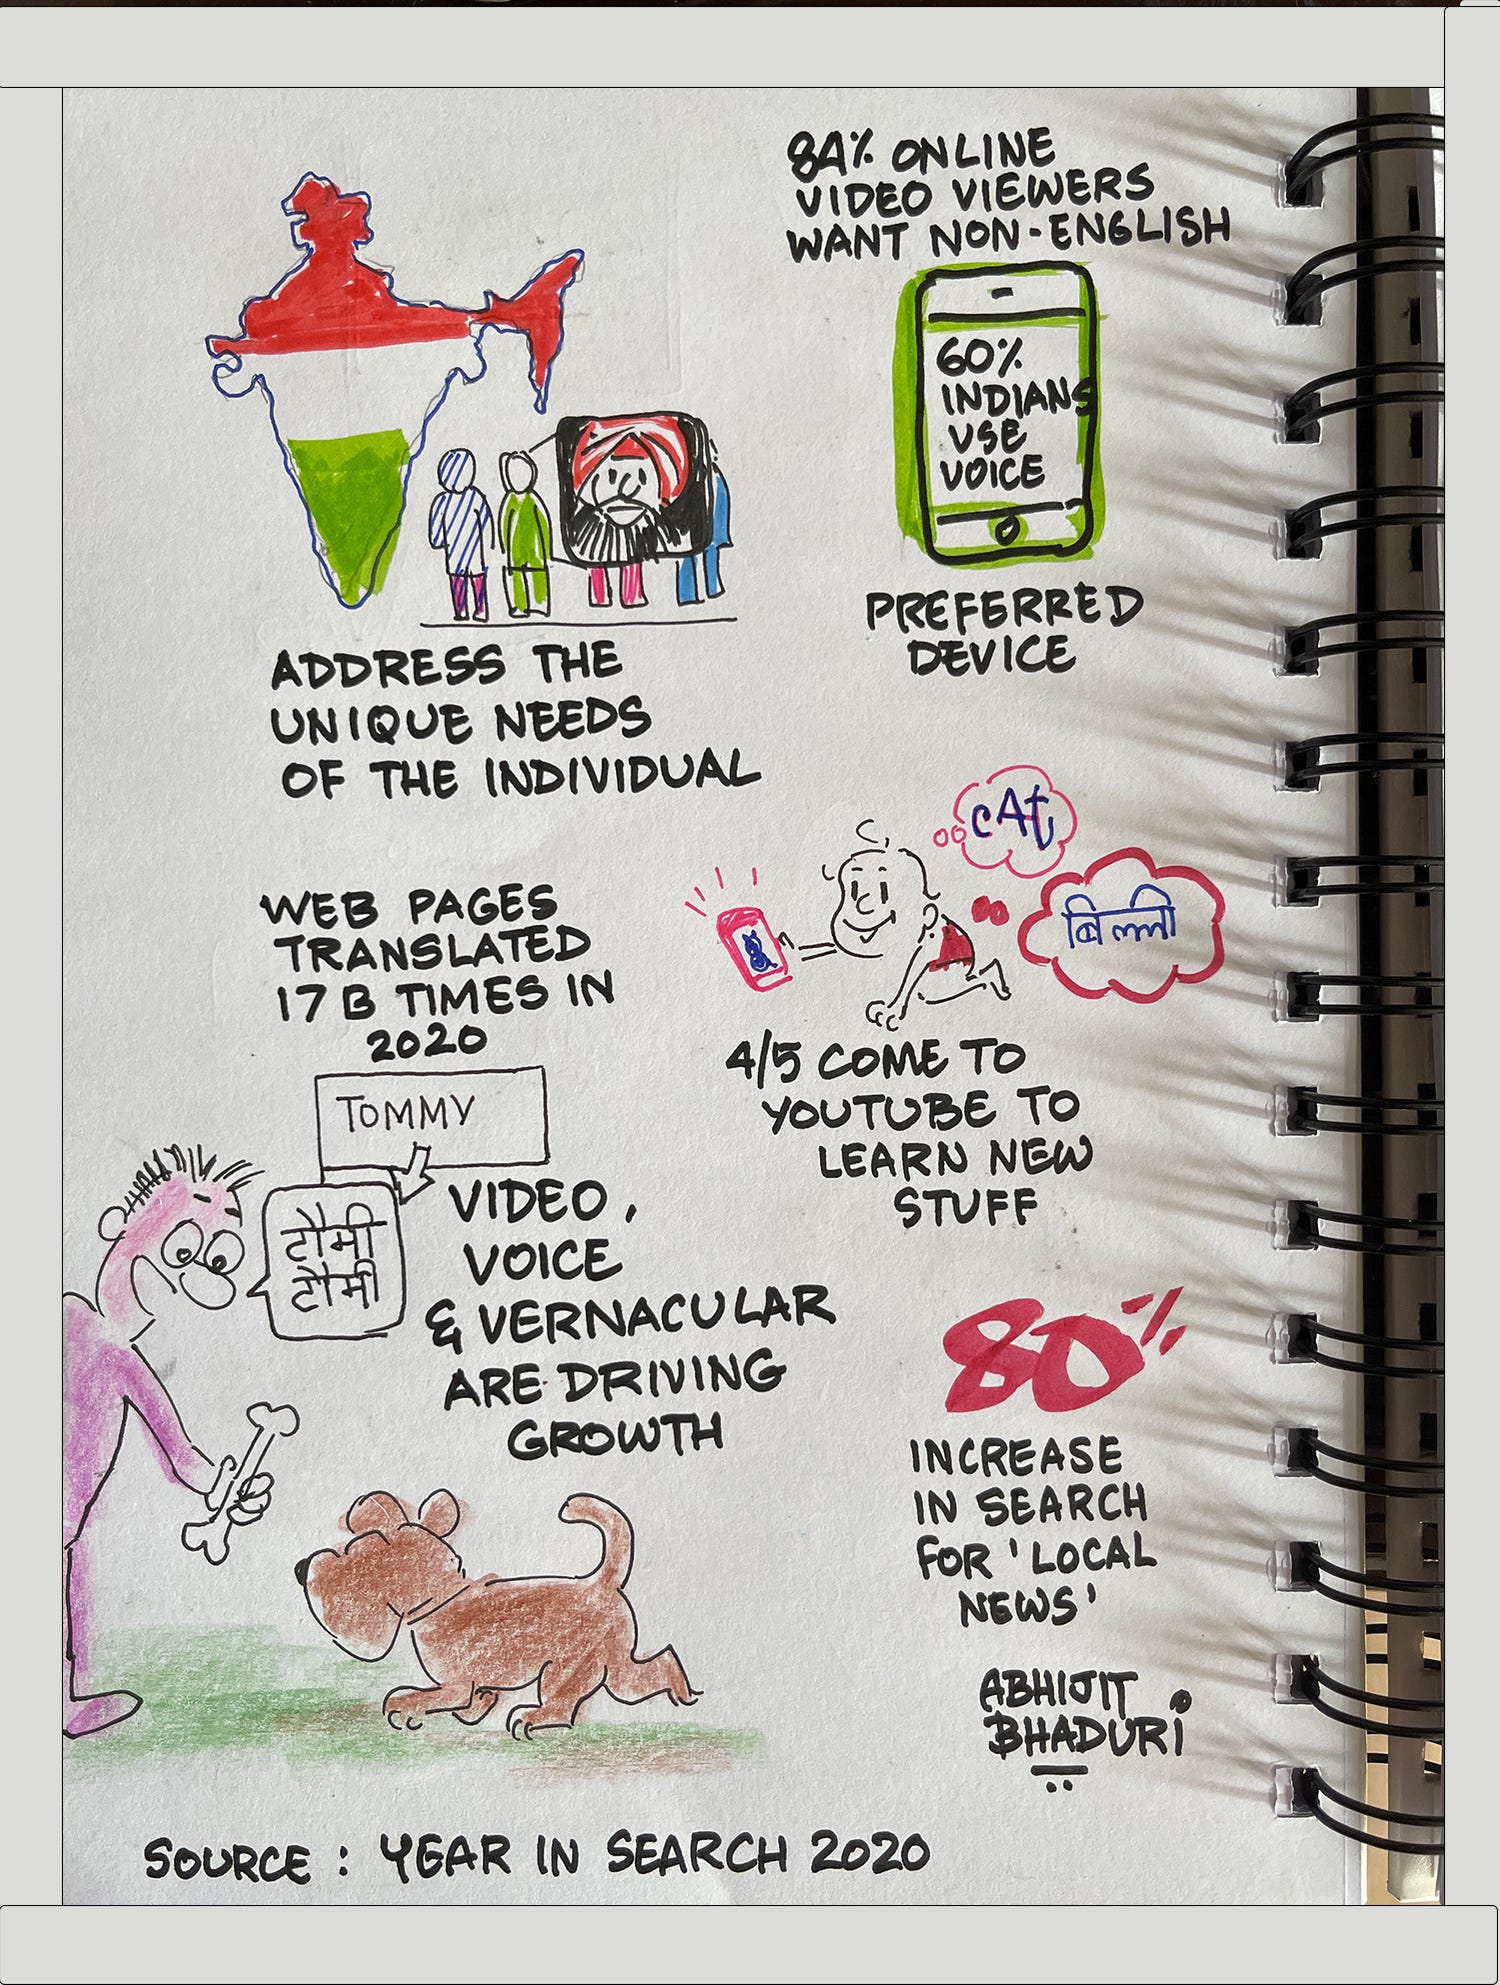 84% ONLINE
VIDEO VIEWERS
WANT NON-ENGLISH
60%
INDIANS
USE
VOICE
PREFERRED
DEVICE
ADDRESS THE
UNIQUE NEEDS
OF THE INDIVIDUAL
cAt
बिल्ली
WEB PAGES
TRANSLATED
17 B TIMES IN
2020
4/5 COME TO
YOUTUBE TO
LEARN NEW
STUFF
TOMMY
टौमी
टौमी
VIDEO,
VOICE
& VERNACULAR
ARE DRIVING
GROWTH
80%
INCREASE
IN SEARCH
FOR 'LOCAL
NEWS'
ABHIJIT
BHADURI
SOURCE : YEAR IN SEARCH 2020